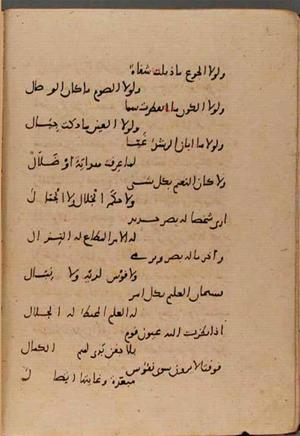 ولولا الجوع ماذبلت شفاة
ولولا الصوم ماكان الوصال
ولولا الكون ما انفطرت سما
ولولا العين مادكت جبال
ولولا ما ابان الرشد غيا
لما عرفت هداية او ضلال
ولا كان النعيم بكل شى
ولا حكم الجلال ولا الجمال
ارى شخصا له بصر حديد
له الامر المطاع له
واخر ماله بصر ويرى
ولا قوس لديه ولا
فسبحان العليم بكل امر
له العلم المحيط له الجلال
اذا نظرت اليه عيون قوم
بلا جفن بدى لهم الكمال
فوقتا لا يرون سوى نفوس
مبعدة وغايتها اتصال